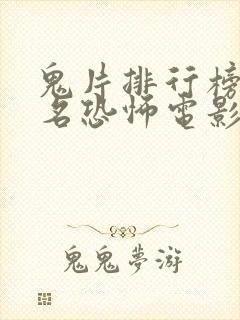 鬼片排行榜
名恐怖電影
鬼鬼夢游